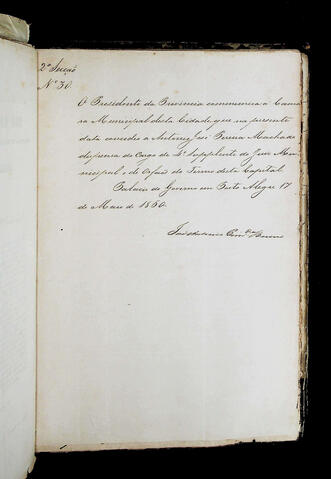 2ª Secção
Nº 30.
O Presidente da Provincia communica á Cama
ra Municipal desta Cidade que na presente
data concedeu a Antonio José Pereira Machado
dispensa do Cargo de 4º Supplente do Juiz Mu
nicipal e de Orfaos do Termo desta Capital.
Palacio do Governo em Porto Alegre 17
de Maio de 1860.